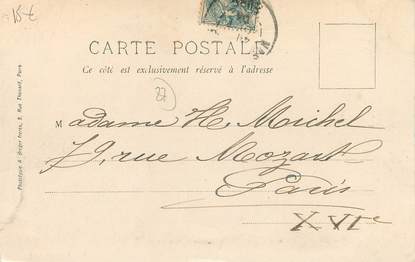 15€
CARTE POSTALE
Ce côté est exclusivement réservé à l'adresse
27
Madame H. Michel
79, rue Mozart
Paris
XVIe
Phototypie A. Berger frères, 9, Rue Thénard, Paris